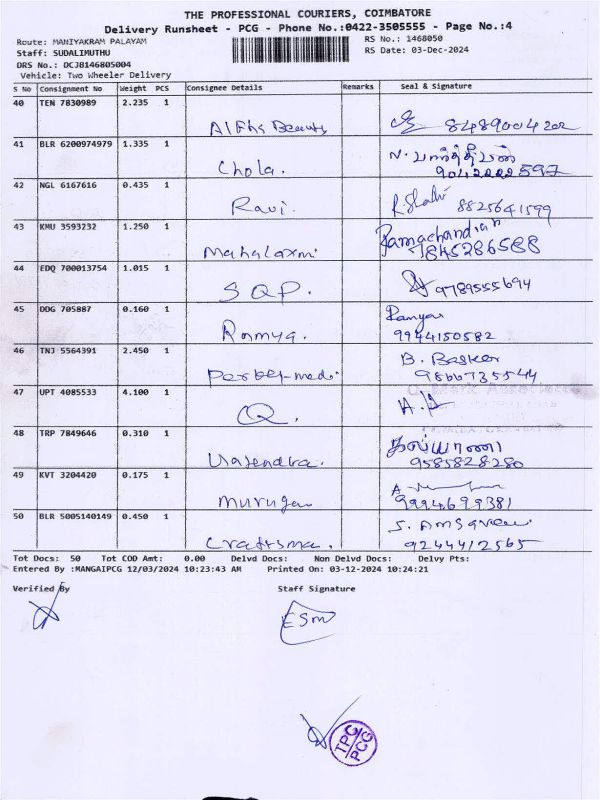 THE PROFESSIONAL COURIERS, COIMBATORE
Delivery Runsheet - PCG - Phone No.:0422-3505555 - Page No.:4
Route: MANIYAKRAM PALAYAM
RS No.: 1468050
Staff: SUDALIMUTHU
RS Date: 03-Dec-2024
DRS No.: DCJ8146805004
Vehicle: Two Wheeler Delivery
S No Consignment No Weight PCS Consignee Details Remarks Seal & Signature
40 TEN 7830989 2.235 1
Alphs Beauty 8489004202
41 BLR 6200974979 1.335 1
Chola. N.
9042222597
42 NGL 6167616 0.435 1
Ravi. 8825641599
43 KMU 3593232 1.250 1 Ramachandran
Mahalaxmi 845286588
44 EDQ 700013754 1.015 1
SQP. 9789555694
45 DDG 705887 0.160 1
Ramya. 9944150582
46 TNJ 5564391 2.450 1 B. Basker
9866735544
47 UPT 4085533 4.100 1
Q. A.
48 TRP 7849646 0.310 1 கல்யாணி
9585828280
49 KVT 3204420 0.175 1
Murugan 9994699381
50 BLR 5005140149 0.450 1 S.
9244412565
Tot Docs: 50 Tot COD Amt: 0.00 Delvd Docs: Non Delvd Docs: Delvy Pts:
Entered By :MANGAIPCG 12/03/2024 10:23:43 AM Printed On: 03-12-2024 10:24:21
Verified By Staff Signature
ESM
TPC
PCG